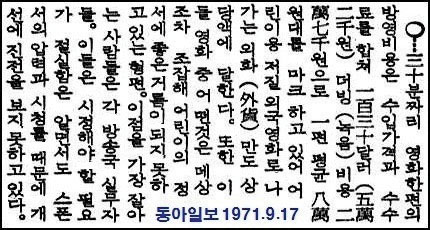 ○—三十분짜리 영화한편의
방영비용은 수입가격과 수수
료를 합쳐 一百三十달러 (五萬
二千원) 더빙 (녹음) 비용 二
萬七千원으로 一편 평균 八萬
원대를 마크 하고 있어 어
린이용 저질 외국영화로 나
가는 외화 (外貨) 만도 상
당액에 달한다. 또한 이
들 영화 중 어떤것은
조차 조잡해 어린이의 정
서에 좋은 거름이 되지 못하
고 있는 형편. 이점을 가장 잘아
는 사람들은 각 방송국 실무자
들. 이들은 시정해야 할 필요
가 절실함은 알면서도 스폰
서의 압력과 시청률 때문에 개
선에 진전을 보지 못하고 있다.
동아일보 1971.9.17